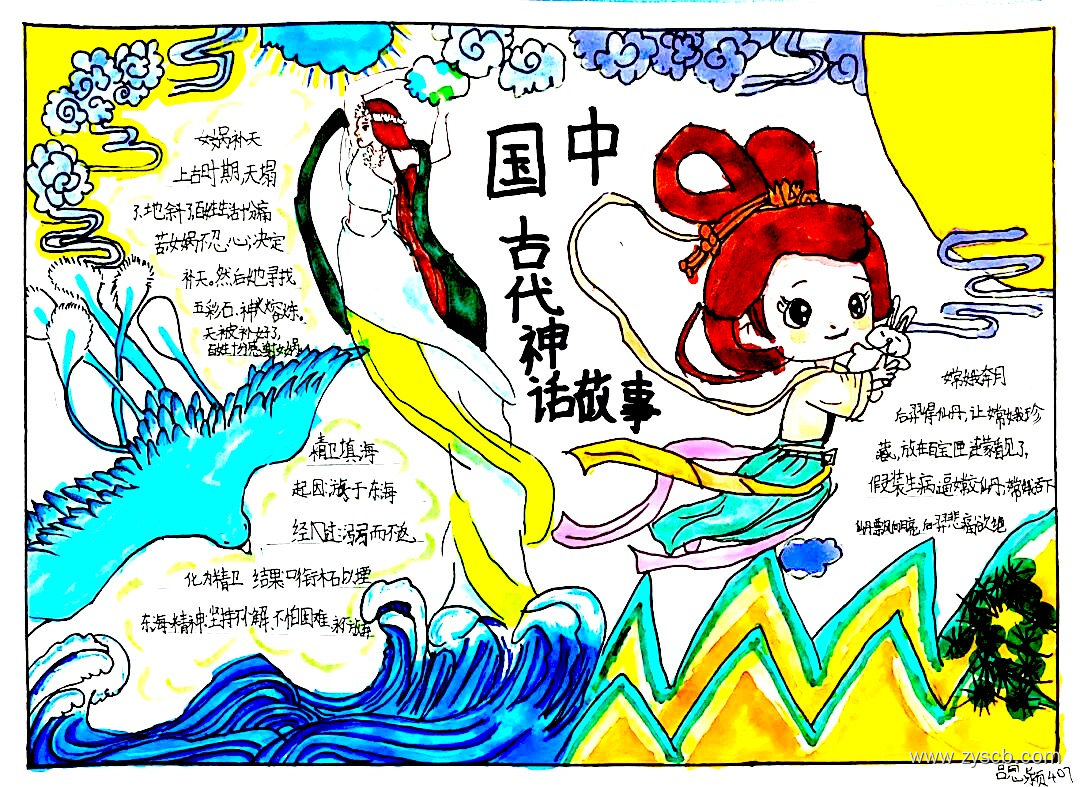 中国
古代神话故事
女娲补天
上古时期,天塌
了,地斜了,百姓生活十分痛
苦,女娲不忍心,决定
补天。然后她寻找
五彩石,神火熔炼。
天被补好了,
百姓十分感谢女娲
精卫填海
起因:游于东海
经过:溺而不返
化为精卫 结果:口衔木石以堙
东海,精神:坚持不懈、不怕困难
嫦娥奔月
后羿得仙丹,让嫦娥珍
藏,放在百宝匣,逢蒙看见了,
假装生病逼嫦娥交仙丹,嫦娥吞下
后羿悲痛欲绝
www.zyscb.com
407